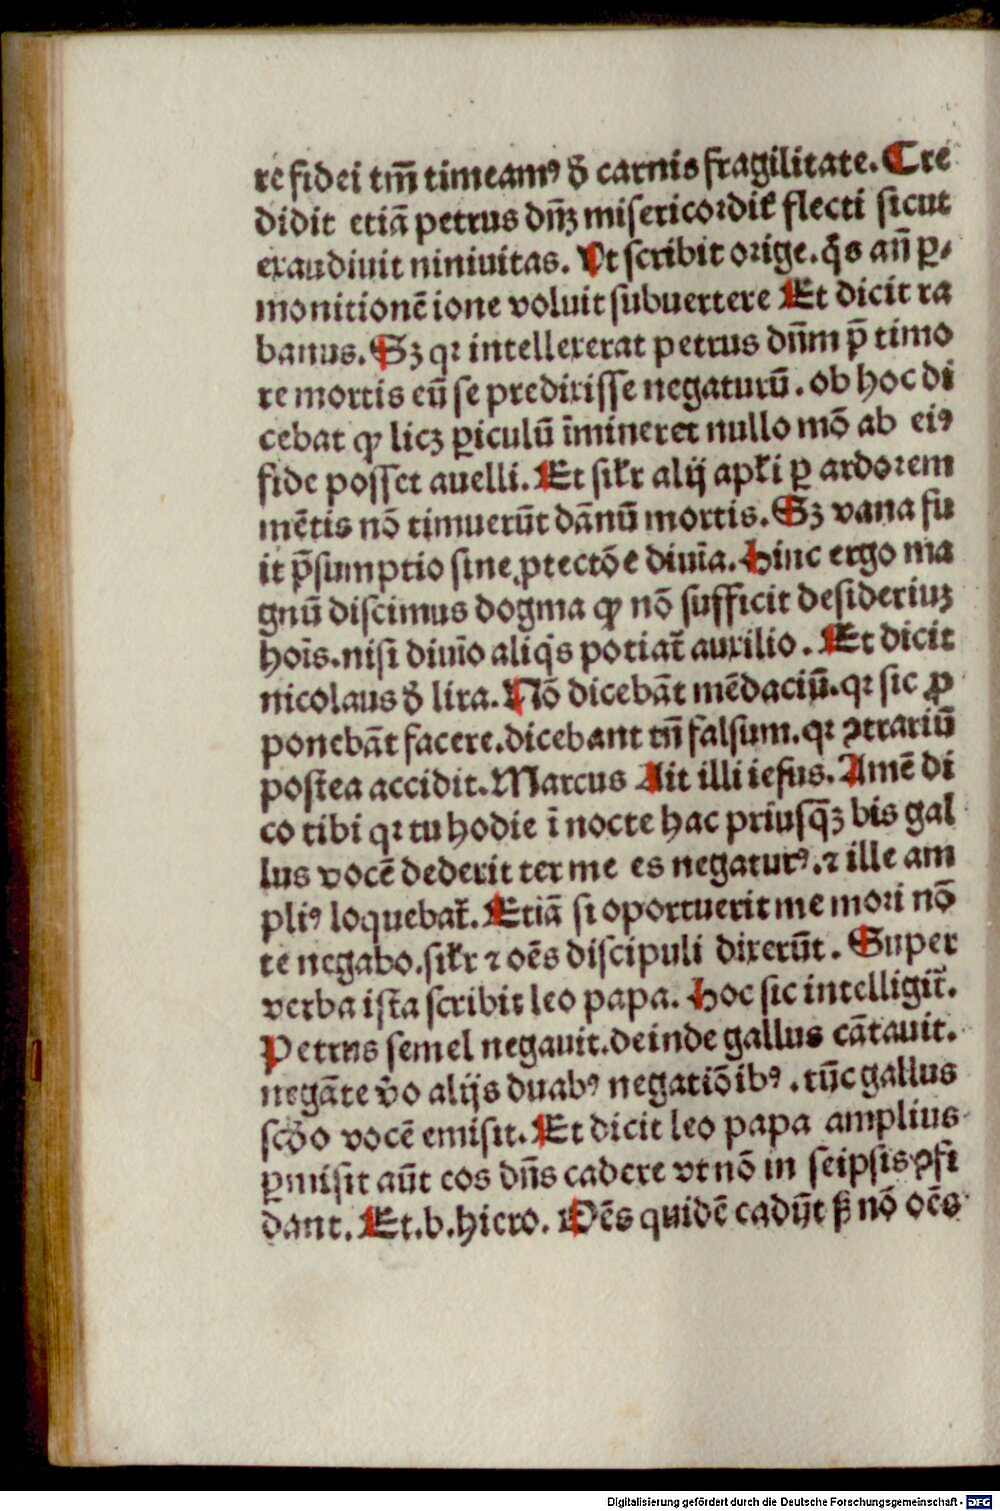 re fidei tm̄ timeamꝰ đ carnis fragilitate. Cre
didit etiā petrus dn̄ʒ misericordit̛ flecti sicut
exaudiuit niniuitas. Vt scribit orige. q̄s an̄ ꝑ⸗
monitionē ione voluit subuertere Et dicit ra
banus. Sʒ qꝛ intellexerat petrus dn̄m p̄ timo
re mortis eū se predixisse negaturū. ob hoc di
cebat ꝙ licʒ ꝑiculū īmineret nullo mō ab eiꝰ
fide posset auelli. Et sil̛r alij apl̛i ꝑ ardorem
mētis nō timuerūt dānū mortis. Sʒ vana fu
it p̄sumptio sine ꝓtectōe diuīa. Hinc ergo ma
gnū discimus dogma ꝙ nō sufficit desideriuʒ
hoīs. nisi diuīo aliq̄s potiat̛ auxilio. Et dicit
nicolaus đ lira. Nō dicebāt mēdaciū. qꝛ sic ꝓ
ponebāt facere. dicebant tn̄ falsum. qꝛ ꝯtrariū
postea accidit. Marcus Ait illi iesus. Amē di
co tibi qꝛ tu hodie ī nocte hac priusq̄ʒ bis gal
lus vocē dederit ter me es negaturꝰ. ⁊ ille am
pliꝰ loquebat̛. Etiā si oportuerit me mori nō
te negabo. sil̛r ⁊ oēs discipuli dixerūt. Super
verba ista scribit leo papa. Hoc sic intelligit̄.
Petrus semel negauit. deinde gallus cātauit.
negāte v̄o alijs duabꝰ negatiōibꝰ. tūc gallus
scđo vocē emisit. Et dicit leo papa amplius
ꝑmisit aūt eos dn̄s cadere vt nō in seipsis ꝯfi
dant. Et. b. hiero. Oēs quidē cadūt sꝫ nō oēs
Digitalisierung gefördert durch die Deutsche Forschungsgemeinschaft - DFG